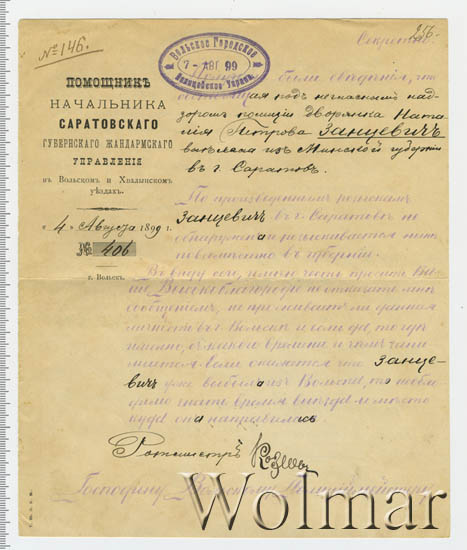 № 146.
256.
Секретно.
Вольское Городское
7 - АВГ 99
Полицейское Управ.
ПОМОЩНИКЪ
НАЧАЛЬНИКА
САРАТОВСКАГО
ГУБЕРНСКАГО ЖАНДАРМСКАГО
УПРАВЛЕНІЯ
въ Вольскомъ и Хвалынскомъ
уѣздахъ.
4 Августа 1899 г.
№ 406
г. Вольскъ.
были свѣдѣнія, что
состоящая подъ негласнымъ над-
зоромъ полиціи Дворянка Ната-
лія Петрова Занцевичъ
выѣхала изъ Минской губерніи
въ г. Саратовъ.
По произведеннымъ розыскамъ
Занцевичъ въ г. Саратовѣ не
обнаружена и разыскивается
въ губерніи.
Въ виду сего, имѣю честь просить Ваше
Высокоблагородіе не отказать мнѣ
сообщеніемъ, не проживаетъ ли данная
личность въ г. Вольскѣ и если да, то гдѣ
именно, съ какого времени и чѣмъ зани-
мается. Если окажется что Занце-
вичъ уже выбыла изъ Вольска, то необхо-
димо знать время выѣзда и мѣсто
куда она направилась
Ротмистръ
Господину Вольскому Полиціймейстеру
Wolmar